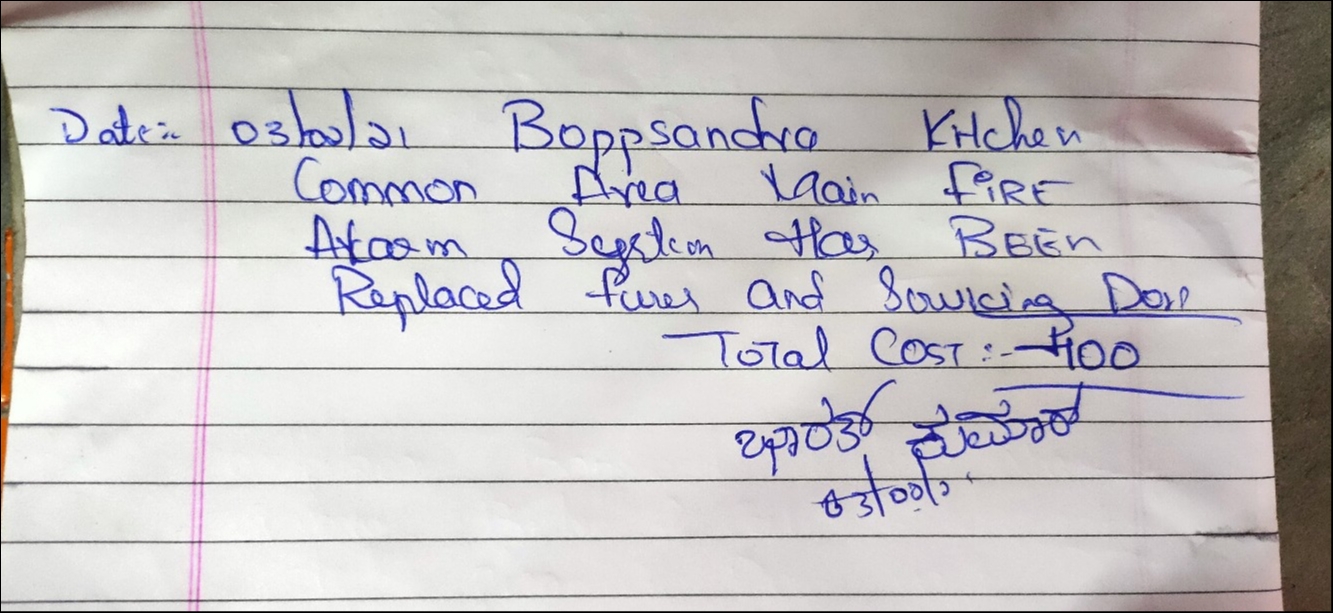 Date:- 03/02/21 Boppsandra Kitchen
Common Area Main FIRE
Alaram System Has BEEN
Replaced fuses and Sourcing Don
Total COST :- 400
ಭಾರತ್ ಕುಮಾರ್